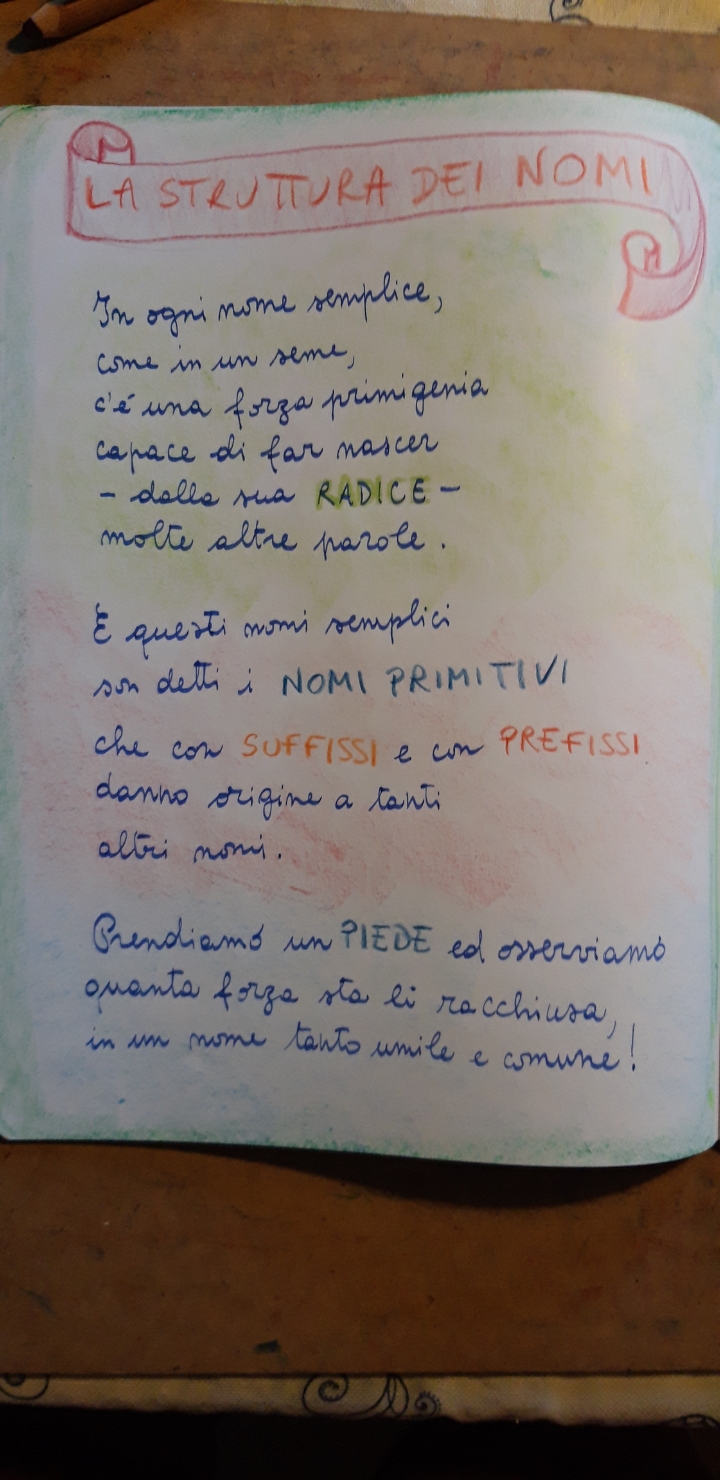 LA STRUTTURA DEI NOMI
In ogni nome semplice,
come in un seme,
c'é una forza primigenia
capace di far nascer
- dalla sua RADICE -
molte altre parole.
E questi nomi semplici
son detti i NOMI PRIMITIVI
che con SUFFISSI e con PREFISSI
danno origine a tanti
altri nomi.
Prendiamo un PIEDE ed osserviamo
quanta forza sta lì racchiusa,
in un nome tanto umile e comune!